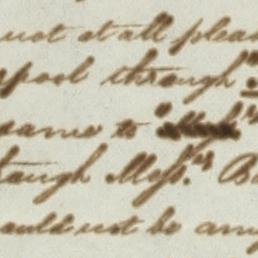 not at all pleas
pool through "
same to "
tough Mess.rs B
could not be any